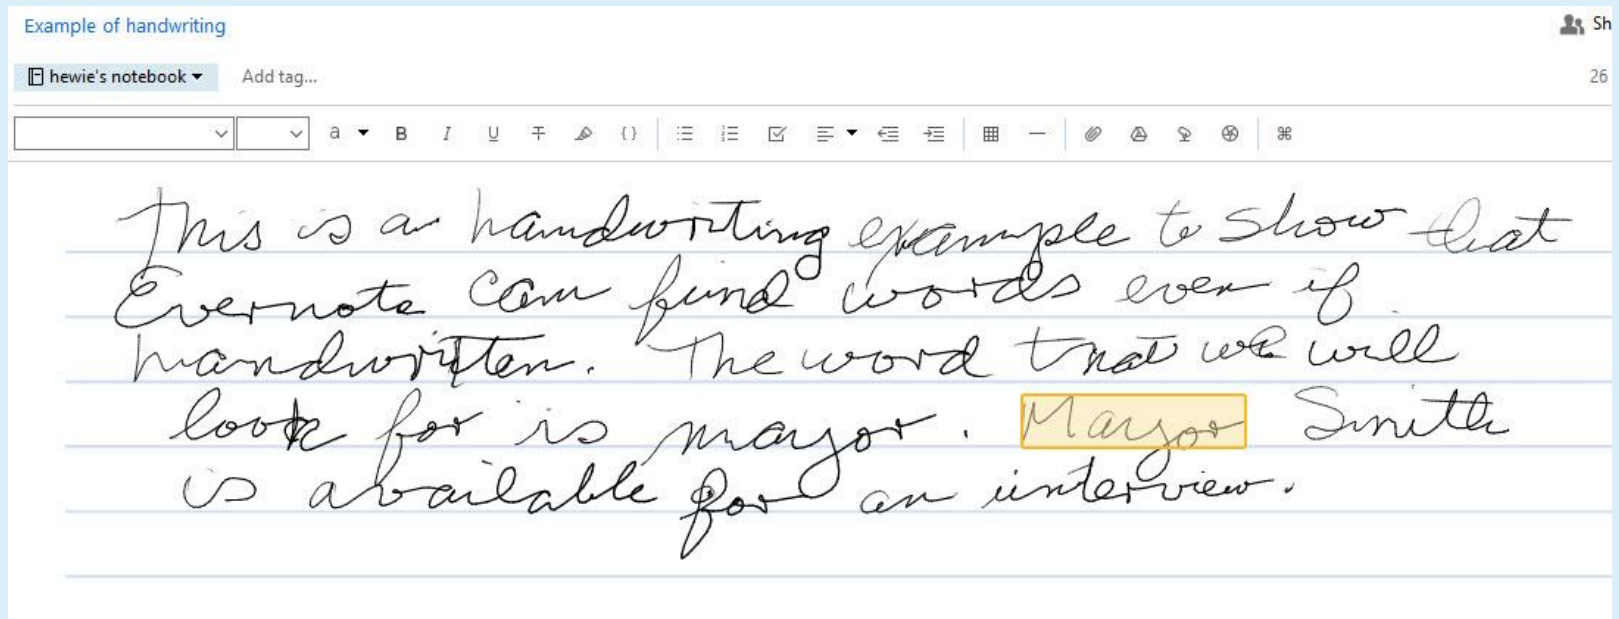 Example of handwriting
Sh
hewie's notebook Add tag...
26
a B I U T {}
This is a handwriting example to show that
Evernote can find words even if
handwritten. The word that we will
look for is mayor. Mayor Smith
is available for an interview.